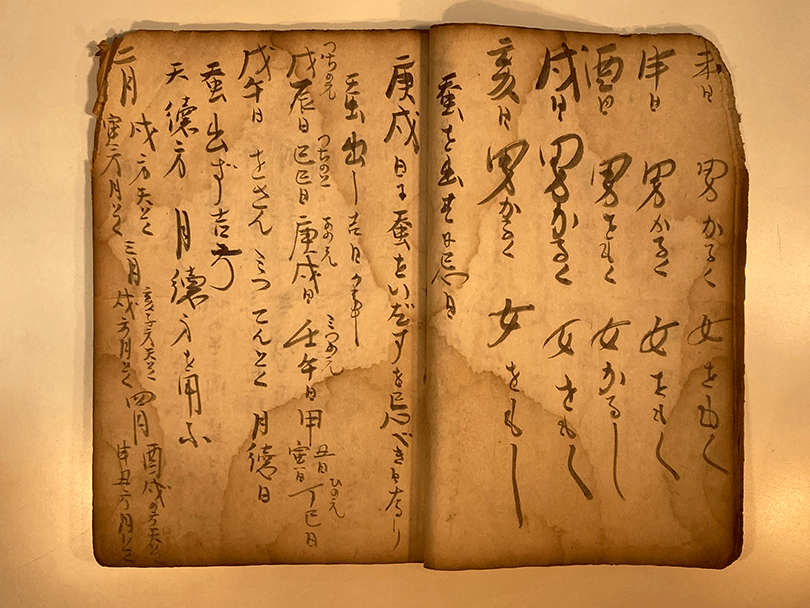 未日 男かるく 女をもく
申日 男かるく 女をもく
酉日 男をもく 女かるし
戌日 男かるく 女をもく
亥日 男かるく 女をもし
蚕を出す日忌日
庚戌日に蚕をいだす事忌べき日なり
蚕出し吉日の事
つちのえ つちのと かのえ みづのえ
戊辰日 己巳日 庚戌日 壬午日 甲寅日 丑日 丁巳日
ひのえ
戊午日 をさん みつ てんとく 月徳日
蚕出ず吉方
天徳方 月徳方を用ふ
二月 戌方天とく 三月 亥子方天とく 四月 酉戌の方天とく
寅方月とく 戌方月とく 申丑方月とく